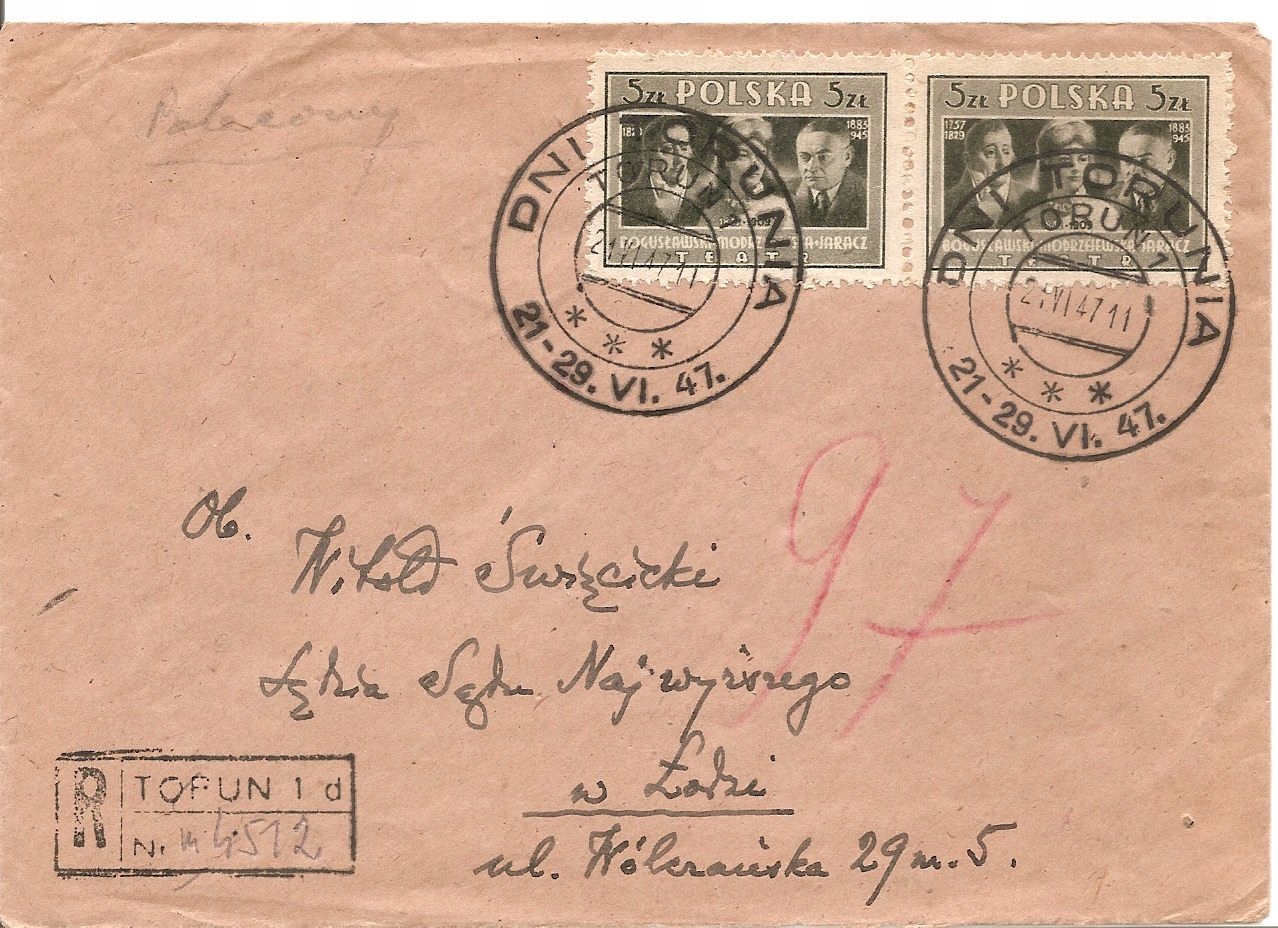 Polecony
5ZŁ POLSKA 5ZŁ
1883
1945
BOGUSŁAWSKI·MODRZEJEWSKA·JARACZ
TEATR
5ZŁ POLSKA 5ZŁ
1757
1829
1883
1945
BOGUSŁAWSKI·MODRZEJEWSKA·JARACZ
TEATR
DNI TORUNIA
TORUŃ 1
21.VI.47.11
* * *
21-29. VI. 47.
DNI TORUNIA
TORUŃ 1
21.VI.47.11
* * *
21-29. VI. 47.
97
Ob.
Witold Święcicki
Sędzia Sądu Najwyższego
w Łodzi
ul. Wólczańska 29 m. 5.
R
TORUN 1 d
Nr. 4512